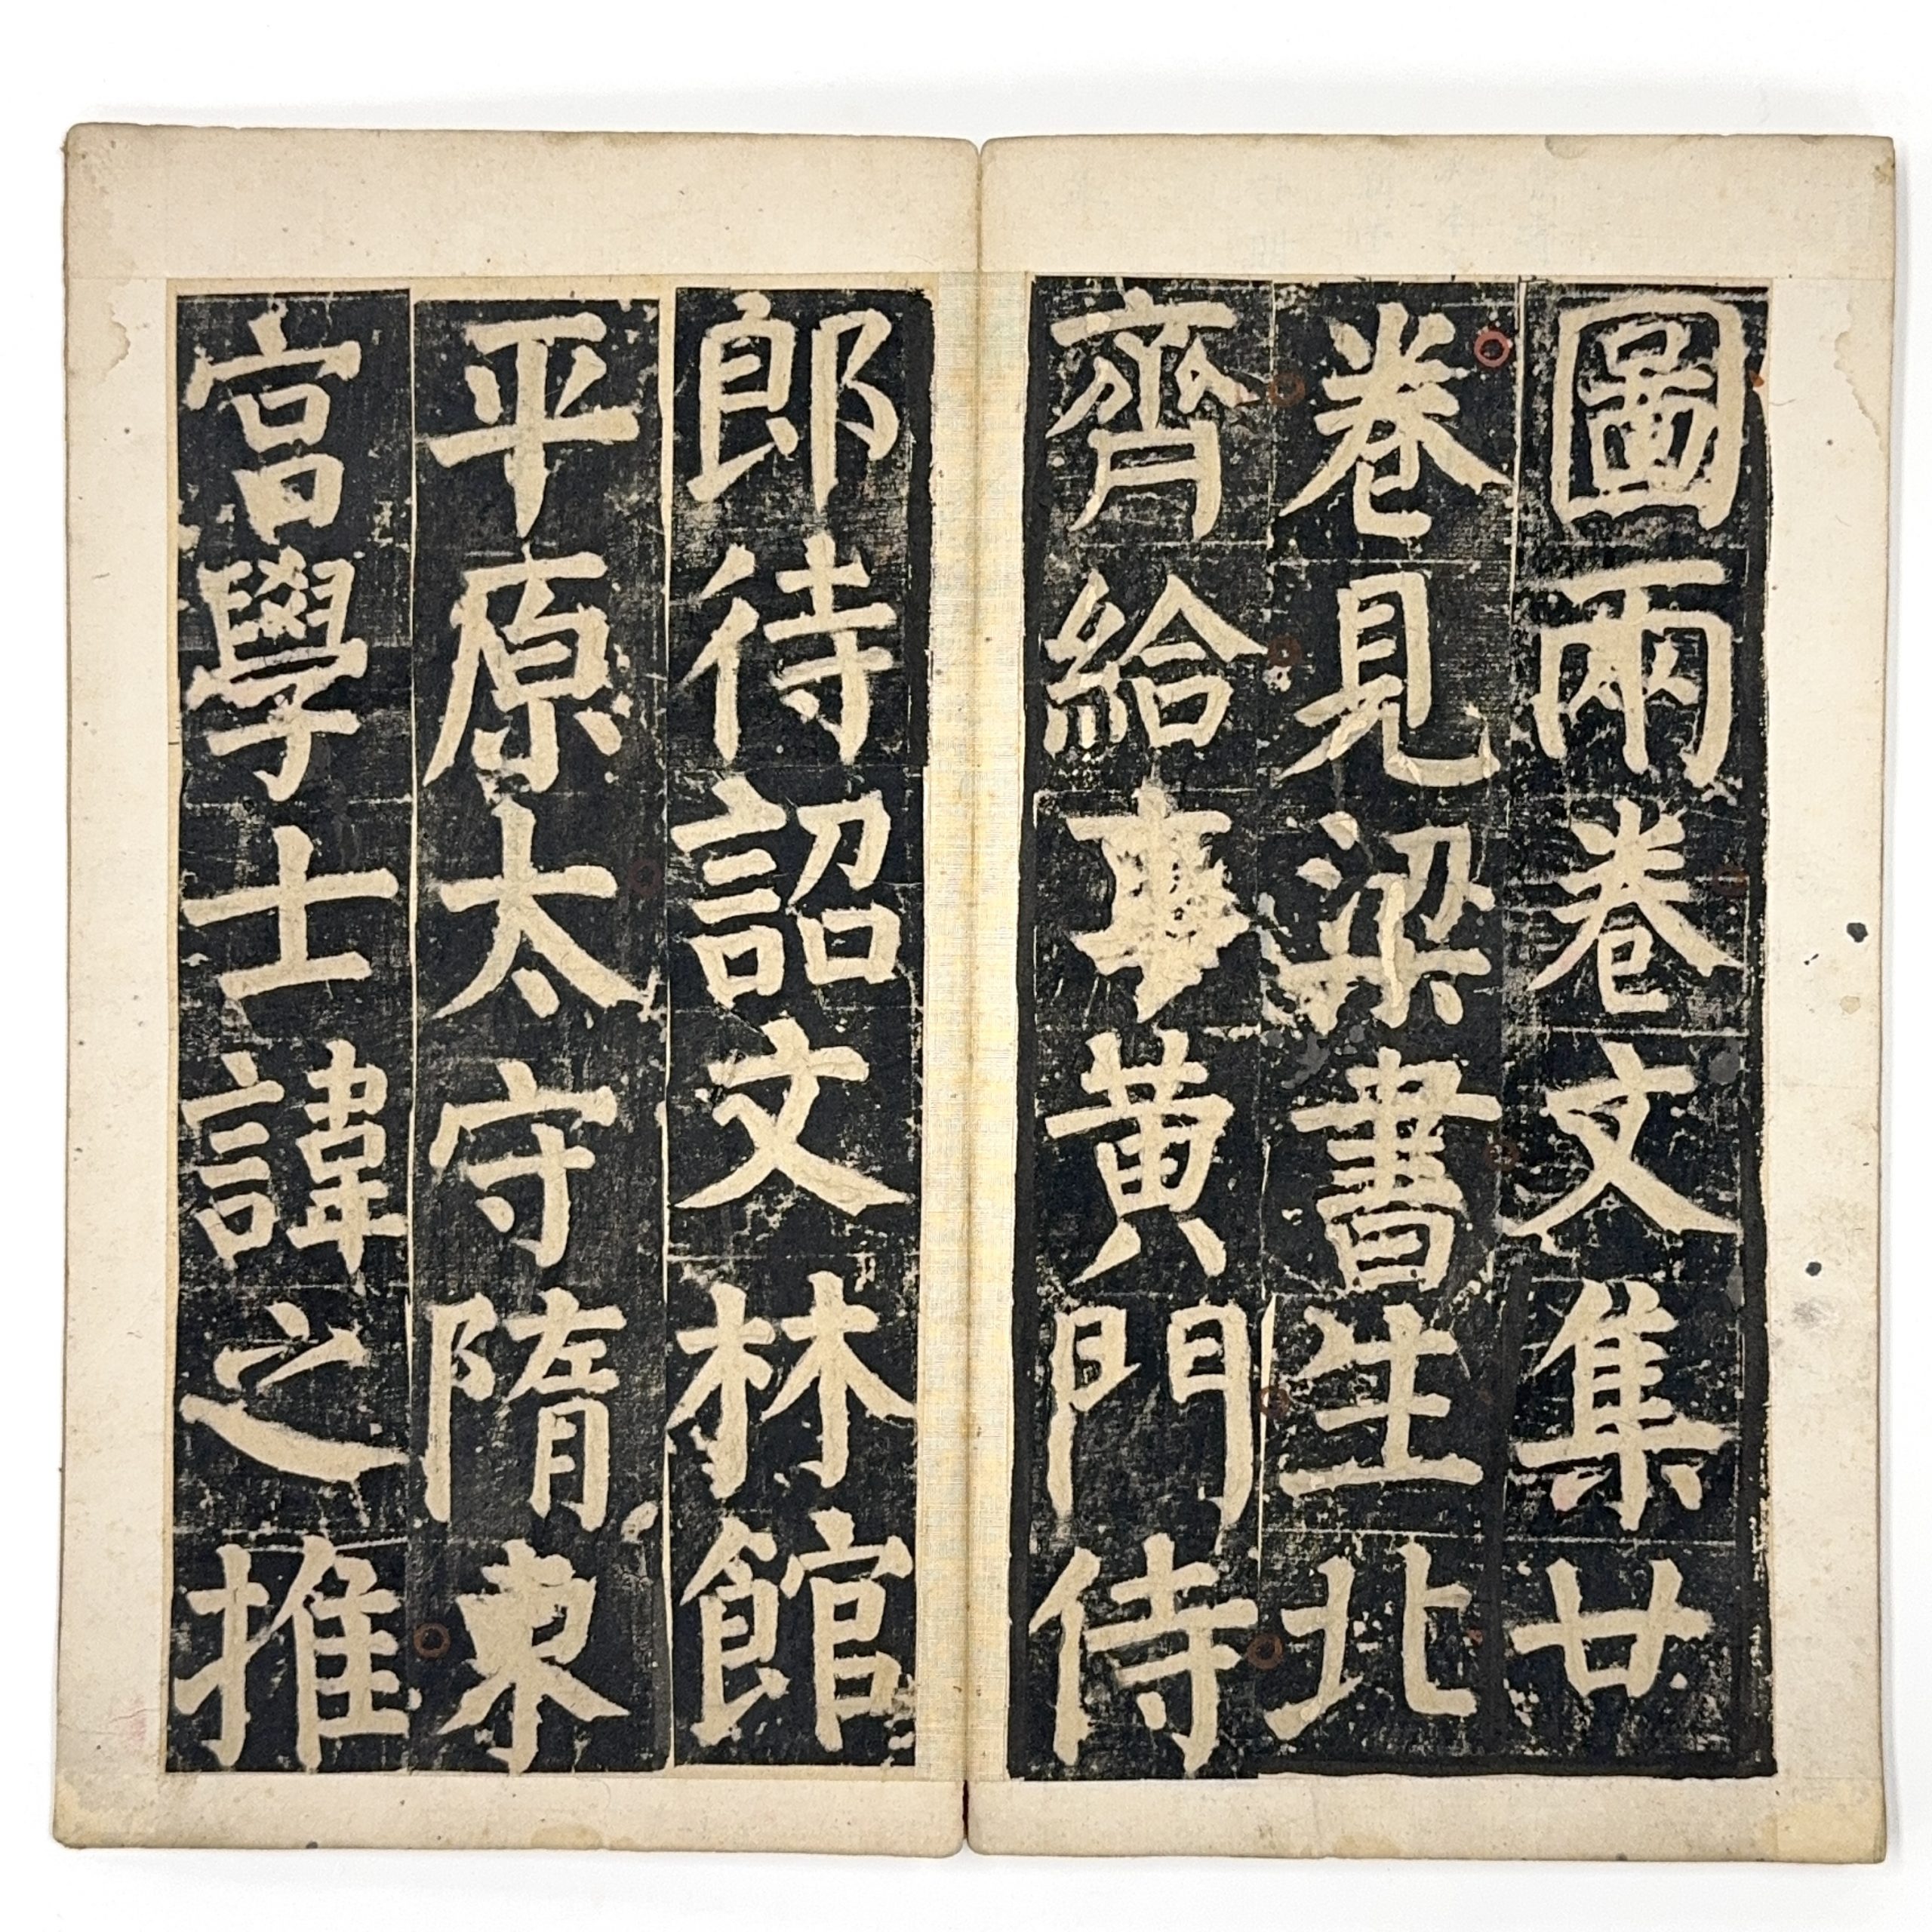 圖兩卷文集廿
卷見梁書生北
齊給事黃門侍
郎待詔文林館
平原太守隋東
宮學士諱之推